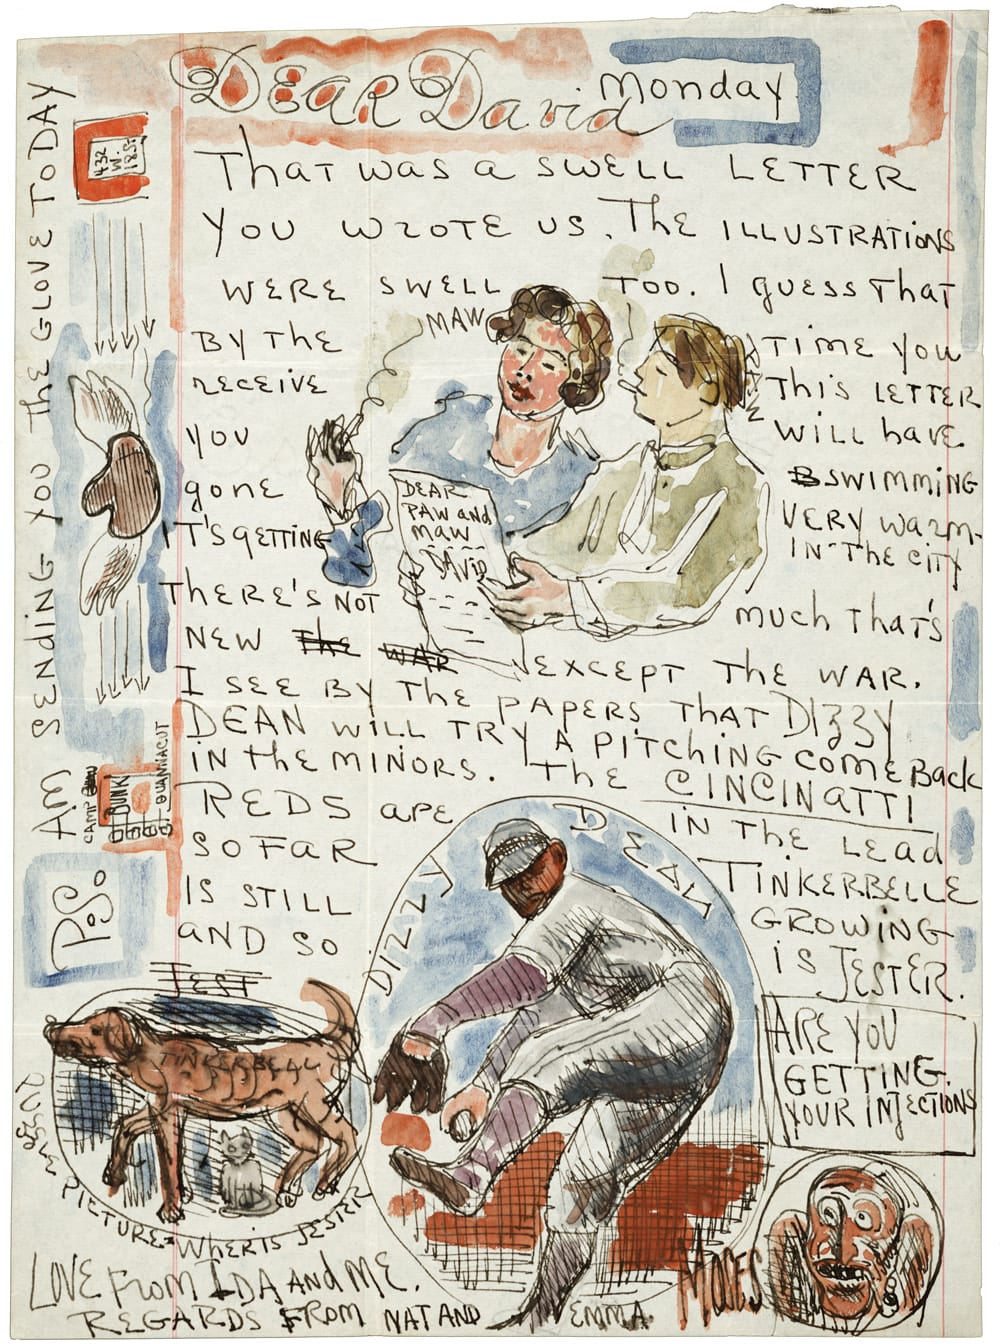 Dear David
Monday
That was a swell letter
you wrote us. The illustrations
were swell too. I guess that
by the time you
receive this letter
you will have
gone swimming
T's getting very warm
in the city
There's not much that's
new the war except the war.
I see by the papers that Dizzy
Dean will try a pitching come back
in the minors. The Cincinatti
Reds are in the lead
so far Tinkerbelle
is still growing
and so is Jester.
MAW
DEAR
PAW and
maw
DAVID
DIZZY DEAN
Are you
getting
your injections
P.S.
JEST
TINKERBEAL
PUZZLE PICTURE = WHER IS JESTER
MOSES
Love from Ida and me.
Regards from Nat and Emma
Am sending you the glove today
432
W.
18 St.
CAMP
BUNK
6
QUANNACUT